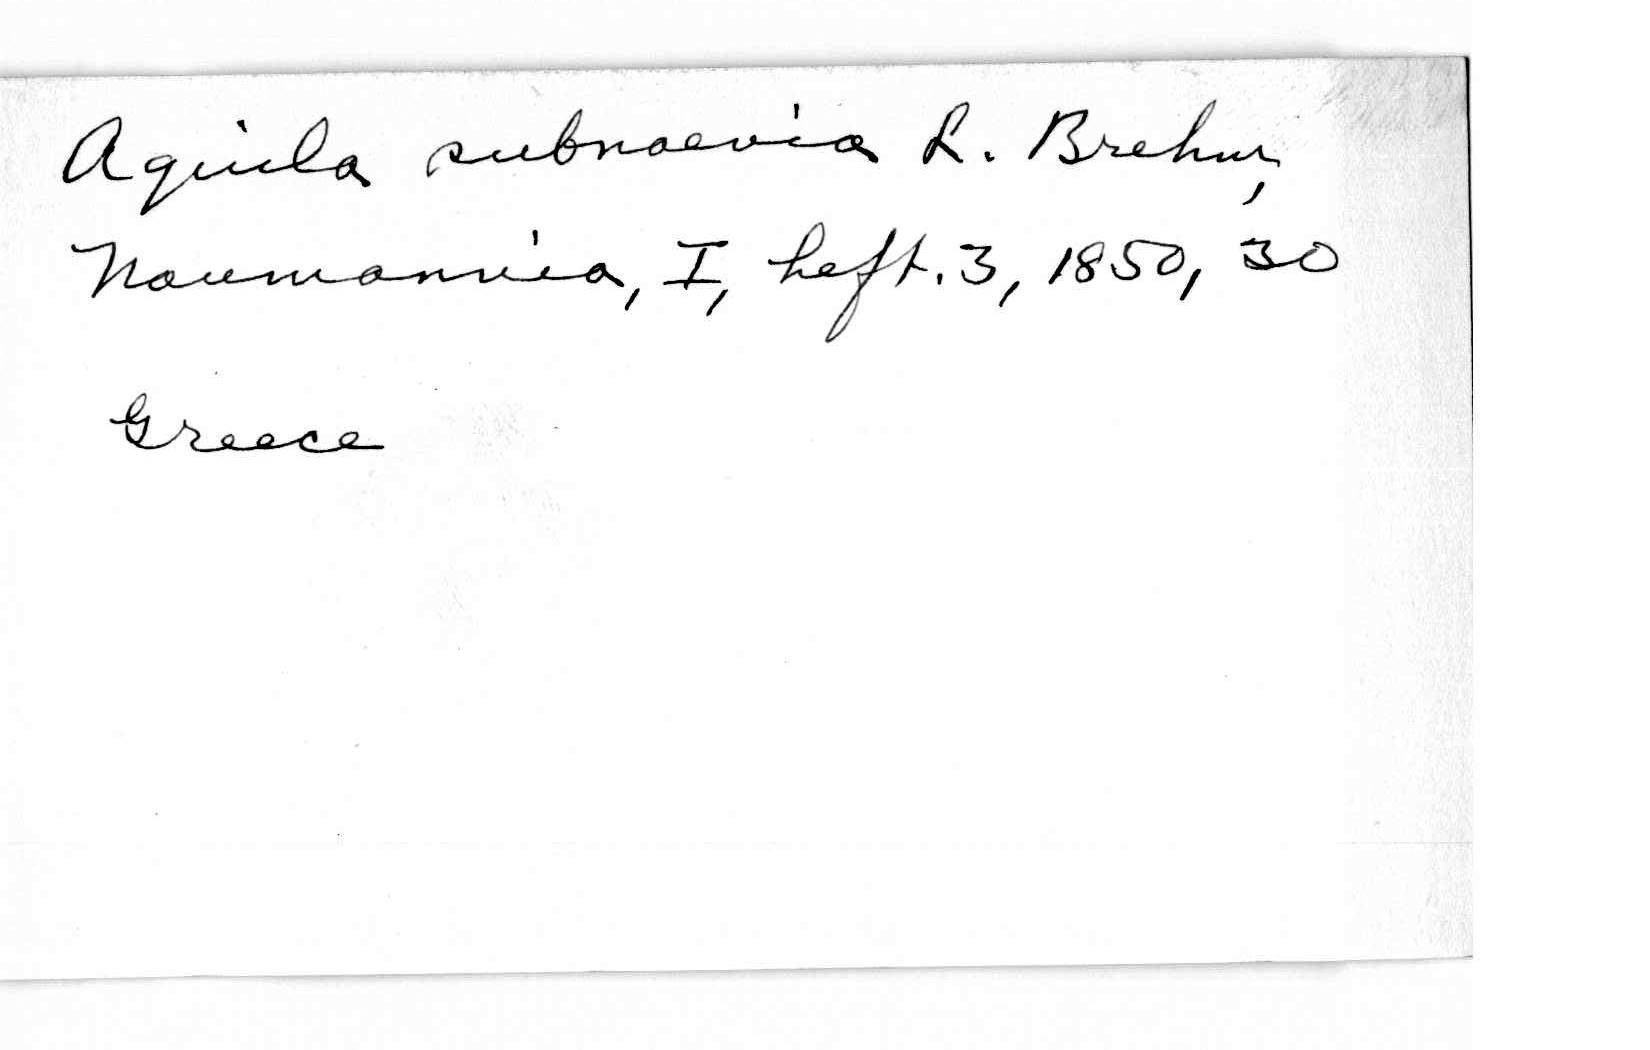 Aquila subnaevia L. Brehm,
Naumannia, I, heft. 3, 1850, 30
Greece